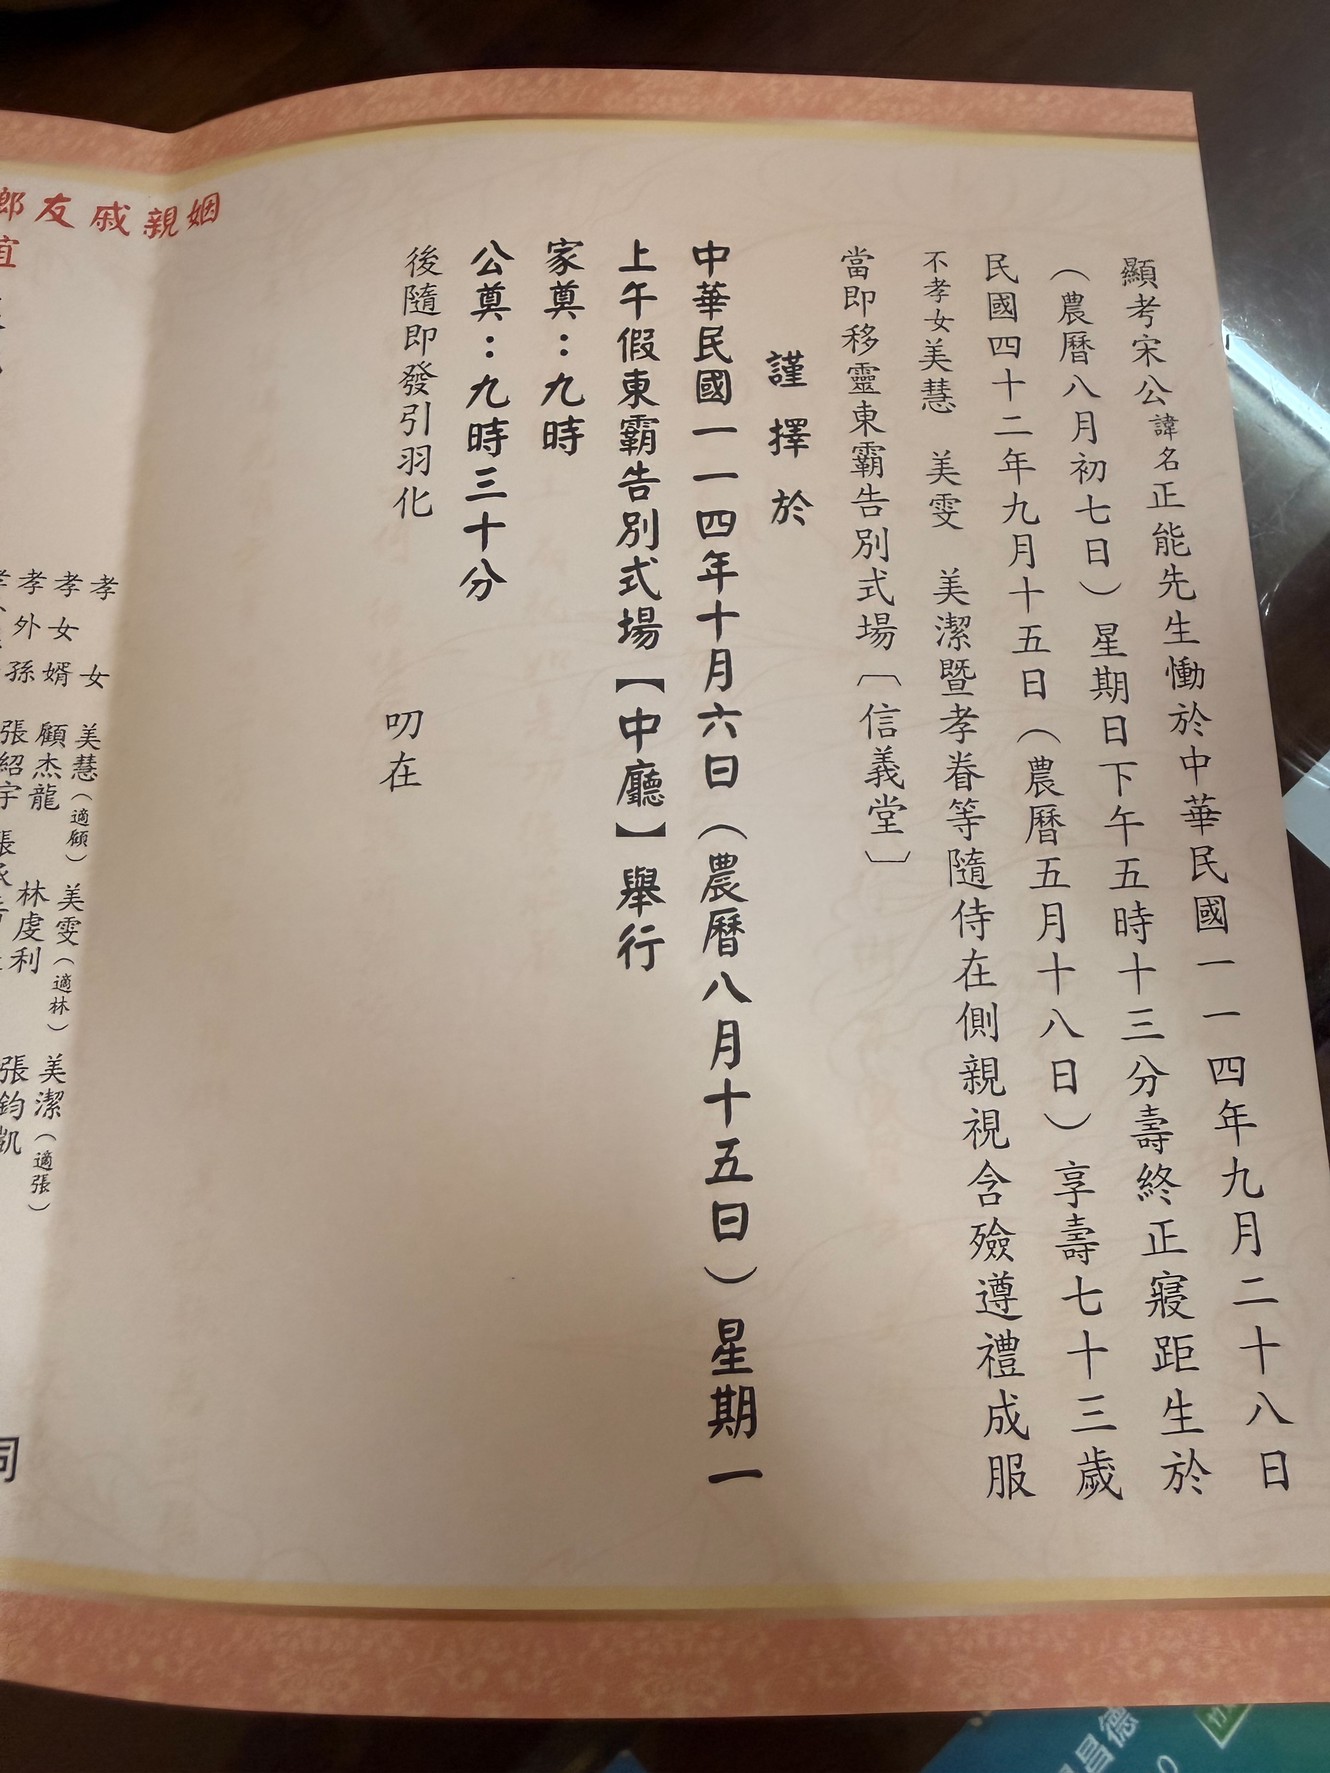 顯考宋公諱名正能先生慟於中華民國一一四年九月二十八日
（農曆八月初七日）星期日下午五時十三分壽終正寢距生於
民國四十二年九月十五日（農曆五月十八日）享壽七十三歲
不孝女美慧　美雯　美潔暨孝眷等隨侍在側親視含殮遵禮成服
當即移靈東霸告別式場〔信義堂〕
謹擇於
中華民國一一四年十月六日（農曆八月十五日）星期一
上午假東霸告別式場【中廳】舉行
家奠：九時
公奠：九時三十分
後隨即發引羽化
叨在
姻親戚友鄉
誼
孝女　美慧（適顧）　美雯（適林）　美潔（適張）
孝女婿　顧杰龍　林虔利　張鈞凱
孝外孫　張紹宇
昌德